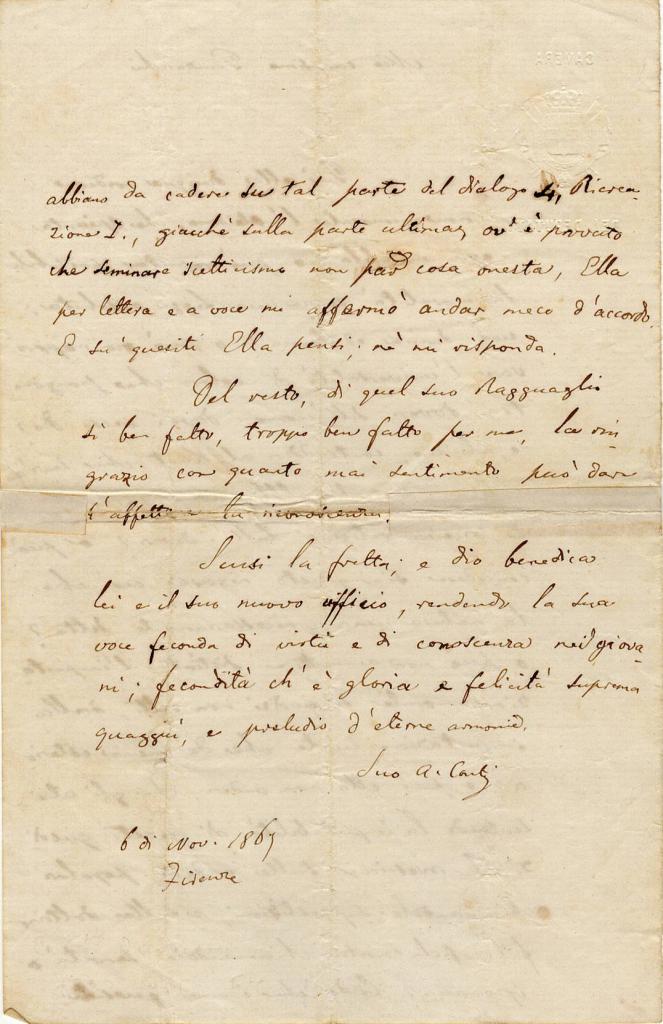 abbiano da cadere su tal parte del dialogo 4, Ricrea-
zione I., giacchè sulla parte ultima, ov' è provato
che seminare scetticismo non par cosa onesta, Ella
per lettera e a voce mi affermò andar meco d'accordo.
E su' quesiti Ella pensi; nè mi risponda.
Del resto, di quel suo Ragguaglio
sì ben fatto, troppo ben fatto per me, la rin-
grazio con quanto mai sentimento può dare
l'affetto e la riconoscenza.
Scusi la fretta; e Dio benedica
lei e il suo nuovo ufficio, rendendo la sua
voce feconda di virtù e di conoscenza nei giova-
ni; fecondità ch' è gloria e felicità suprema
quaggiù, e preludio d'eterne armonie.
Suo A. Conti
6 di Nov. 1867
Firenze
CAMERA